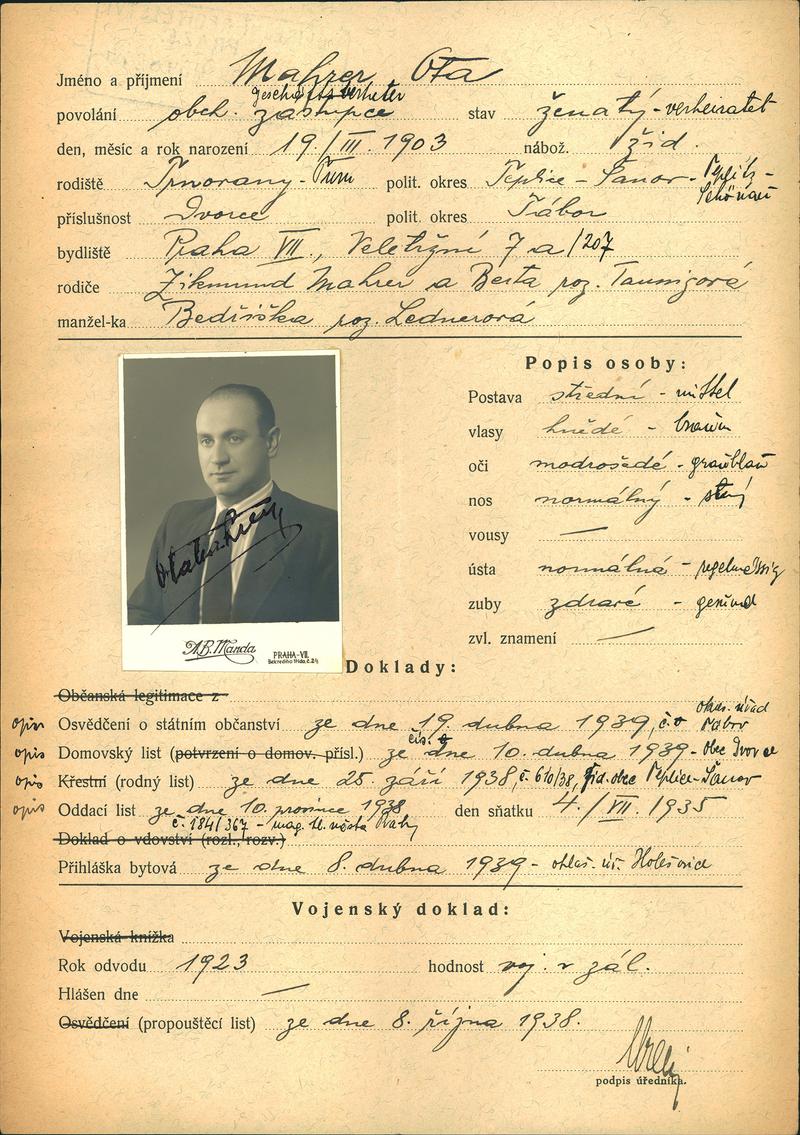 Jméno a příjmení Mahrer Ota
Geschäftsvertreter
povolání obch. zástupce stav ženatý - verheiratet
den, měsíc a rok narození 19./III. 1903 nábož. žid.
rodiště Trnovany - Turn polit. okres Teplice - Šanov - Teplitz-
Schönau
příslušnost Dvorce polit. okres Tábor
bydliště Praha VII., Veletržní 7a/207
rodiče Zikmund Mahrer a Berta roz. Taussigová
manžel-ka Bedřiška roz. Lednerová
Popis osoby:
Postava střední - mittel
vlasy hnědé - braun
oči modrošedé - graublau
nos normálný -
vousy —
ústa normálná - regelmässig
zuby zdravé - gesund
zvl. znamení —
PRAHA-VII.
Doklady:
Občanská legitimace z
okres. úřad
opis Osvědčení o státním občanství ze dne 19. dubna 1939, Tábor
opis Domovský list (potvrzení o domov. přísl.) ze dne 10. dubna 1939 - obec Dvorce
opis Křestní (rodný list) ze dne 25. září 1938, č. 610/38, žid. obec Teplice-Šanov
opis Oddací list ze dne 10. prosince 1938 den sňatku 4./VII. 1935
č. 1841/367 - mag. hl. města Prahy
Doklad o vdovství (rozl., rozv.)
Přihláška bytová ze dne 8. dubna 1939 - ohlaš. úř. Holešovice
Vojenský doklad:
Vojenská knížka
Rok odvodu 1923 hodnost voj. v zál.
Hlášen dne —
Osvědčení (propouštěcí list) ze dne 8. října 1938.
podpis úředníka.